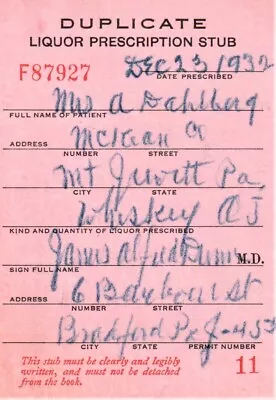 DUPLICATE
LIQUOR PRESCRIPTION STUB
F87927
Dec 23, 1932
DATE PRESCRIBED
Mrs A Dahlberg
FULL NAME OF PATIENT
McKean
ADDRESS NUMBER STREET
Mt Jewitt Pa,
CITY STATE
Whiskey
KIND AND QUANTITY OF LIQUOR PRESCRIBED
James Alfred M.D.
SIGN FULL NAME
St
ADDRESS NUMBER STREET
Bradford Pa
CITY STATE PERMIT NUMBER
This stub must be clearly and legibly
written, and must not be detached
from the book.
11